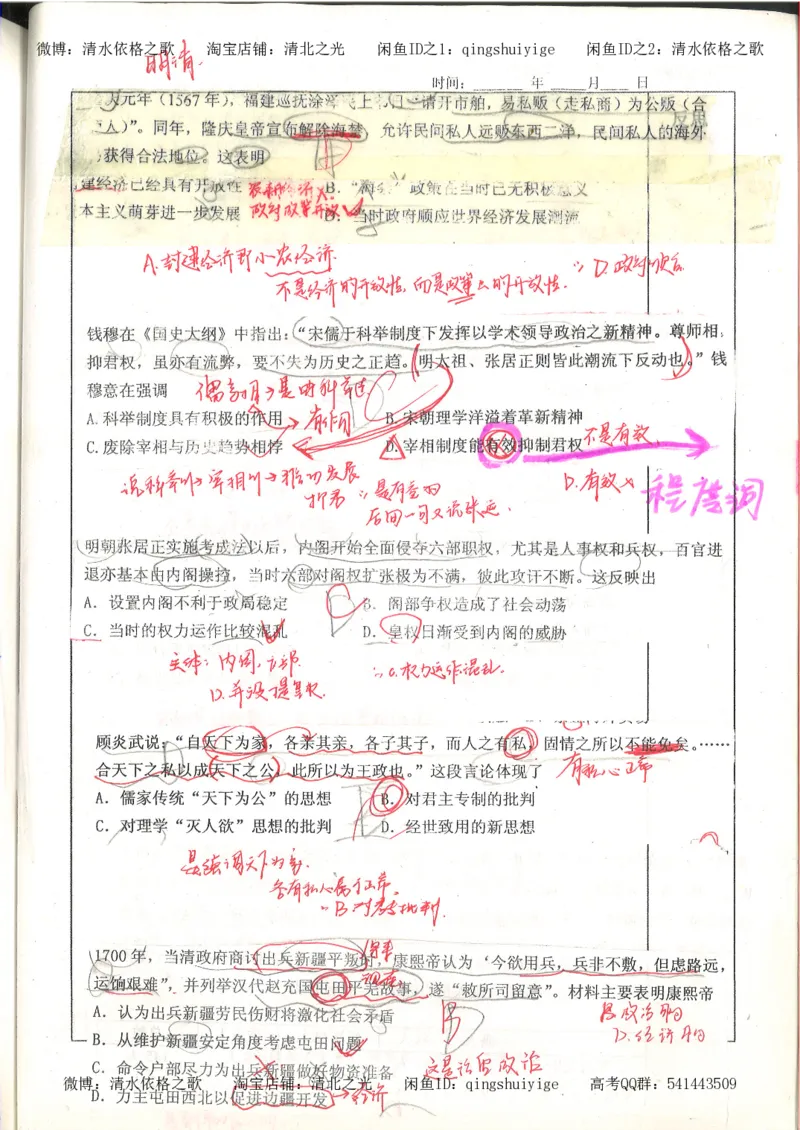 微博：清水依格之歌 淘宝店铺：清北之光 闲鱼ID之1：qingshuiyige 闲鱼ID之2：清水依格之歌
明清.
时间：______ 年 ____月 __ 日
元年（1567年），福建巡抚涂 上 请开市舶，易私贩（走私商）为公贩（合
人）”。同年，隆庆皇帝宣布解除海禁，允许民间私人远贩东西二洋，民间私人的海外
获得合法地位。这表明
建经济已经具有开放性 B．“ ”政策在当时已无积极意义
本主义萌芽进一步发展 D．当时政府顺应世界经济发展潮流
A.封建经济即小农经济.
不是经济的开放性,而是政策上的开放性.
钱穆在《国史大纲》中指出：“宋儒于科举制度下发挥以学术领导政治之新精神。尊师相，
抑君权，虽亦有流弊，要不失为历史之正趋。明太祖、张居正则皆此潮流下反动也。”钱
穆意在强调
A.科举制度具有积极的作用 有作用 B.宋朝理学洋溢着革新精神
C.废除宰相与历史趋势相悖 D.宰相制度能有效抑制君权 不是有效.
D.有效×
程度词
明朝张居正实施考成法以后，内阁开始全面侵夺六部职权，尤其是人事权和兵权，百官进
退亦基本由内阁操控，当时六部对阁权扩张极为不满，彼此攻讦不断。这反映出
A．设置内阁不利于政局稳定 B．阁部争权造成了社会动荡
C．当时的权力运作比较混乱 D．皇权日渐受到内阁的威胁
主体：内阁.六部.
D.并没提皇权. ∴C.权力运作混乱.
顾炎武说：“自天下为家，各亲其亲，各子其子，而人之有私，固情之所以不能免矣。……
合天下之私以成天下之公，此所以为王政也。”这段言论体现了
有私心正常
A．儒家传统“天下为公”的思想 B．对君主专制的批判
C．对理学“灭人欲”思想的批判 D．经世致用的新思想
是强调天下为家.
各有私人属于正常.
1700年，当清政府商讨出兵新疆平叛时，康熙帝认为‘今欲用兵，兵非不敷，但虑路远，
运饷艰难”，并列举汉代赵充国屯田平羌故事，遂“敕所司留意”。材料主要表明康熙帝
A．认为出兵新疆劳民伤财将激化社会矛盾
B．从维护新疆安定角度考虑屯田问题
D.经济目的
C．命令户部尽力为出兵新疆做好物资准备
微博：清水依格之歌 淘宝店铺：清北之光 闲鱼ID：qingshuiyige 高考QQ群：541443509
D．力主屯田西北以促进边疆开发→经济